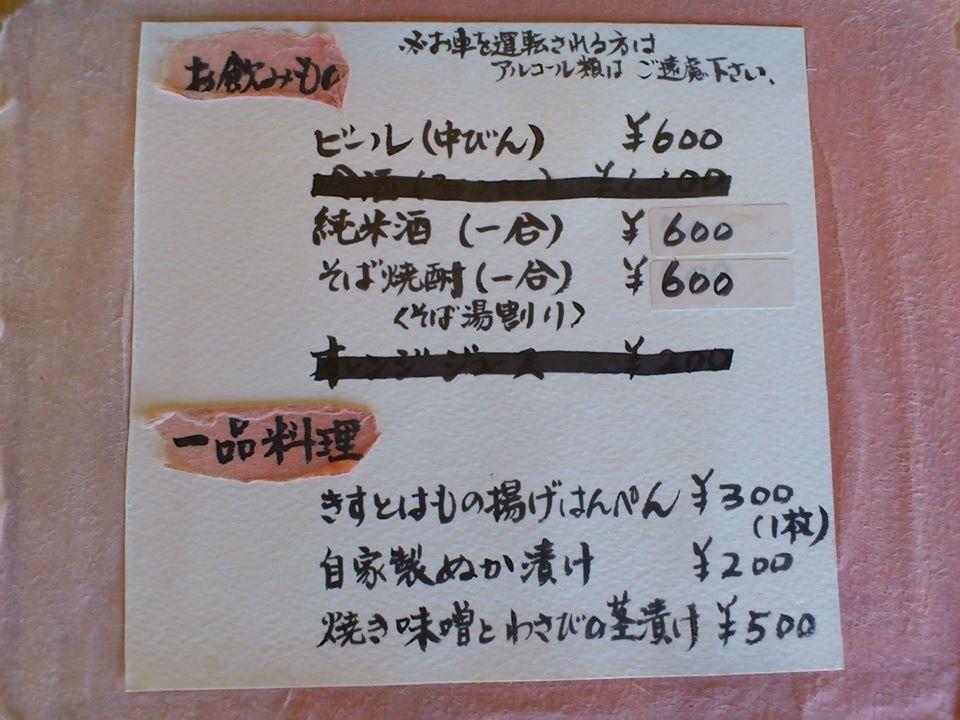 お飲みもの
※お車を運転される方は
アルコール類は ご遠慮下さい。
ビール(中びん) ¥600
純米酒 (一合) ¥600
そば焼酎(一合) ¥600
<そば湯割り>
オレンジジュース ¥200
一品料理
きすとはもの揚げはんぺん ¥300
(1枚)
自家製ぬか漬け ¥200
焼き味噌とわさびの茎漬け ¥500